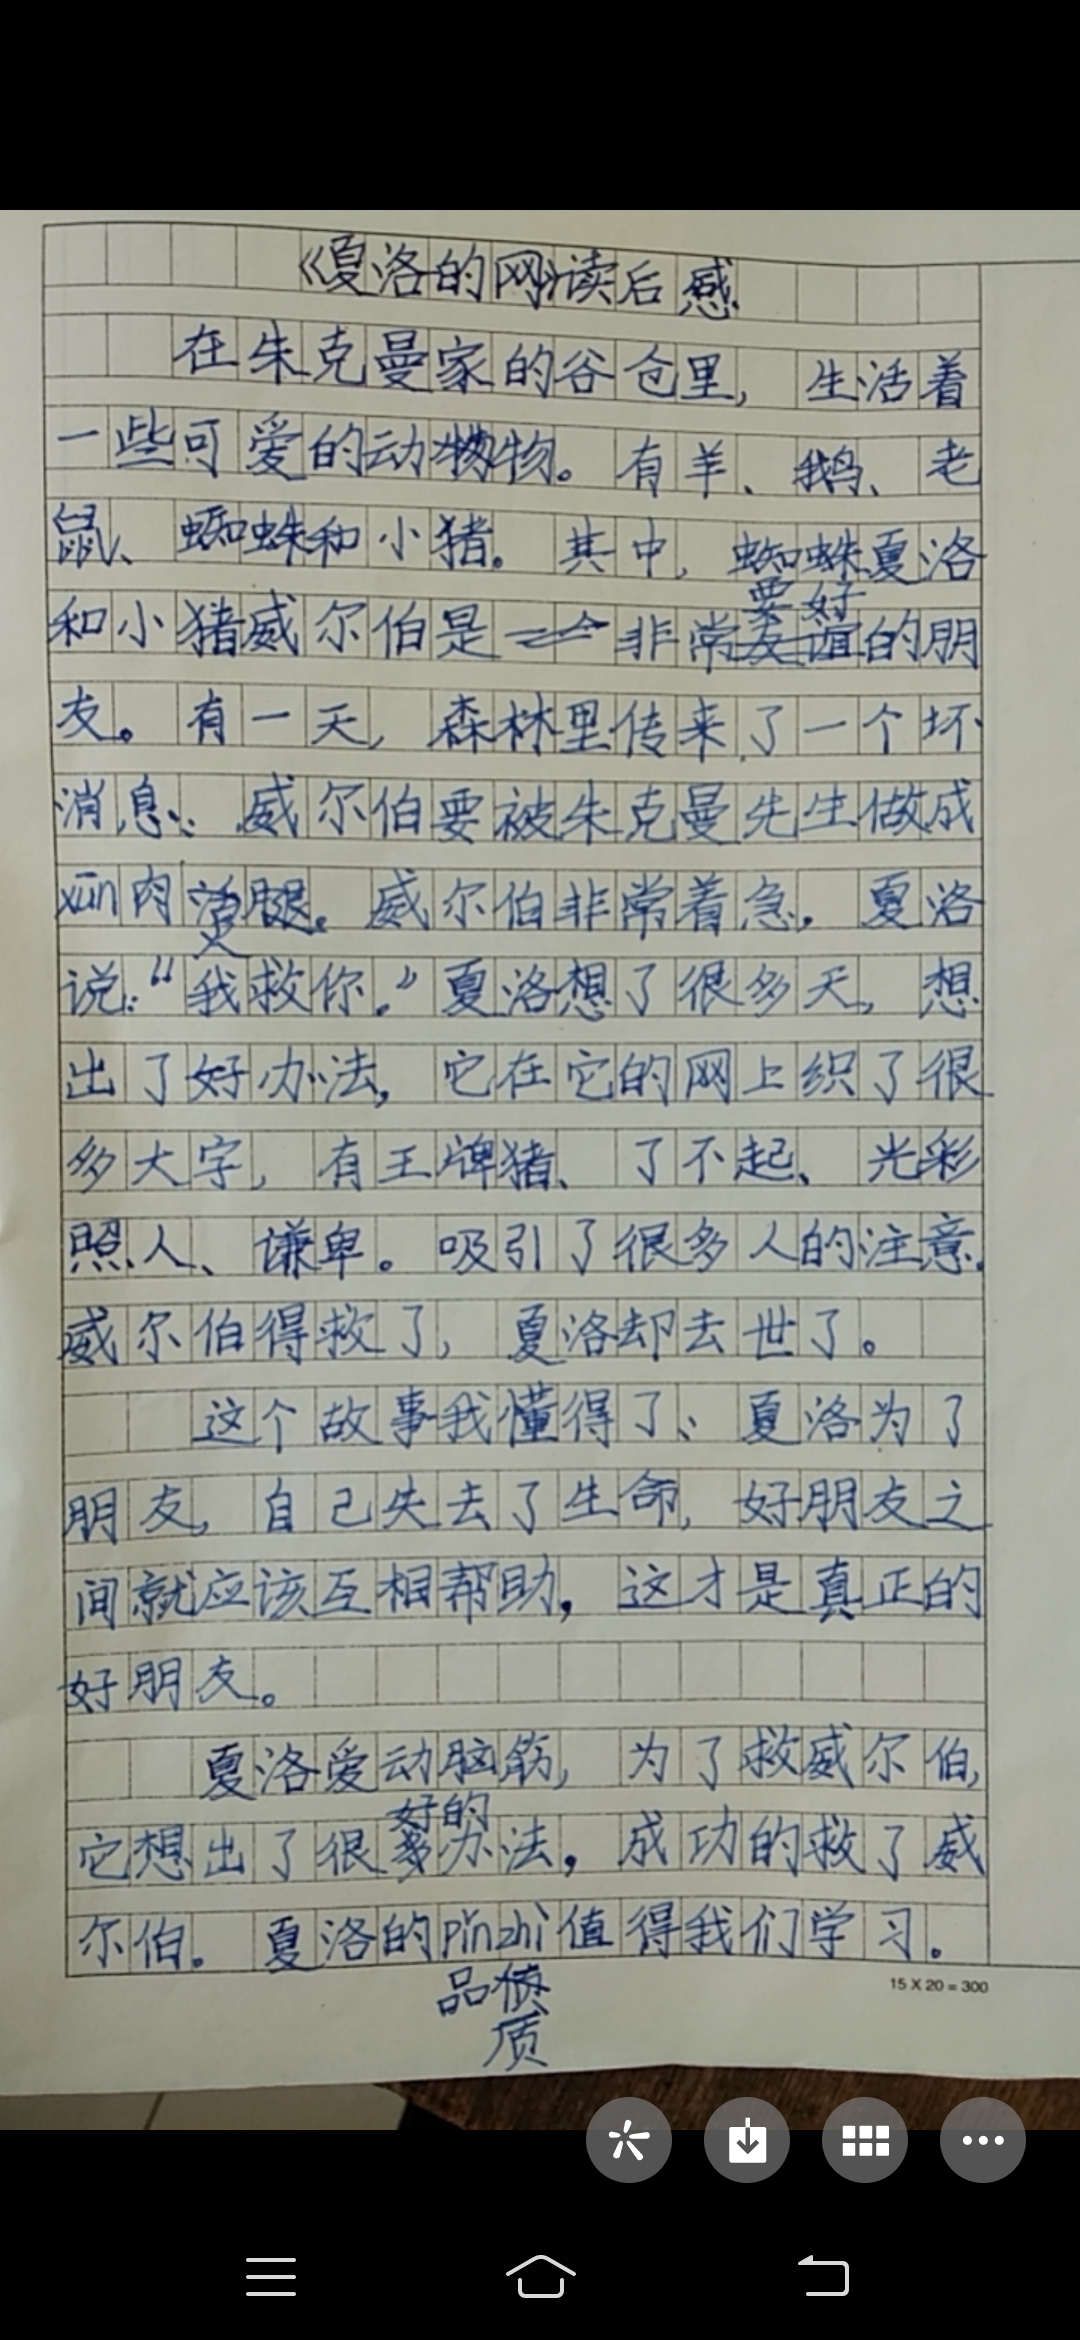 《夏洛的网》读后感
在朱克曼家的谷仓里,生活着
一些可爱的动物。有羊、鹅、老
鼠、蜘蛛和小猪。其中,蜘蛛夏洛
要好
和小猪威尔伯是非常友谊的朋
友。有一天,森林里传来了一个坏
消息、威尔伯要被朱克曼先生做成
xūn肉 腿。威尔伯非常着急,夏洛
火
说:“我救你。”夏洛想了很多天,想
出了好办法,它在它的网上织了很
多大字,有王牌猪、了不起、光彩
照人、谦卑。吸引了很多人的注意.
威尔伯得救了,夏洛却去世了。
这个故事我懂得了、夏洛为了
朋友,自己失去了生命,好朋友之
间就应该互相帮助,这才是真正的
好朋友。
夏洛爱动脑筋,为了救威尔伯,
好的
它想出了很多办法,成功的救了威
尔伯。夏洛的pǐnzhì值得我们学习。
15 X 20 = 300
品
质